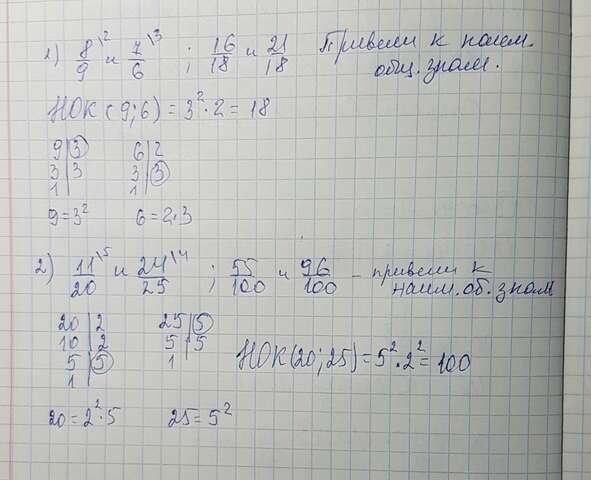 1) 8/9 \2 и 7/6 \3 ; 16/18 и 21/18 Привели к наим.
общ. знам.
НОК (9;6) = 3² · 2 = 18
9|3 6|2
3|3 3|3
1| 1|
9=3² 6=2·3
2) 11/20 \5 и 24/25 \4 ; 55/100 и 96/100 - привели к
наим. об. знам
20|2 25|5
10|2 5|5
5|5 1
1|
НОК(20;25)=5²·2²=100
20=2²·5 25=5²